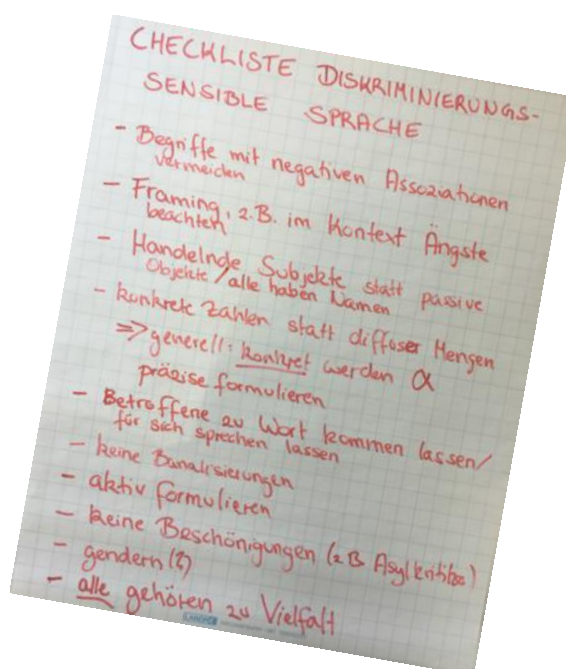 CHECKLISTE DISKRIMINIERUNGS-
SENSIBLE SPRACHE
- Begriffe mit negativen Assoziationen
vermeiden
- Framing, z.B. im Kontext Ängste
beachten
- Handelnde Subjekte statt passive
Objekte / alle haben Namen
- konkrete Zahlen statt diffuser Mengen
=> generell: konkret werden &
präzise formulieren
- Betroffene zu Wort kommen lassen/
für sich sprechen lassen
- keine Banalisierungen
- aktiv formulieren
- keine Beschönigungen (z B Asylkritiker)
- gendern (?)
- alle gehören zu Vielfalt